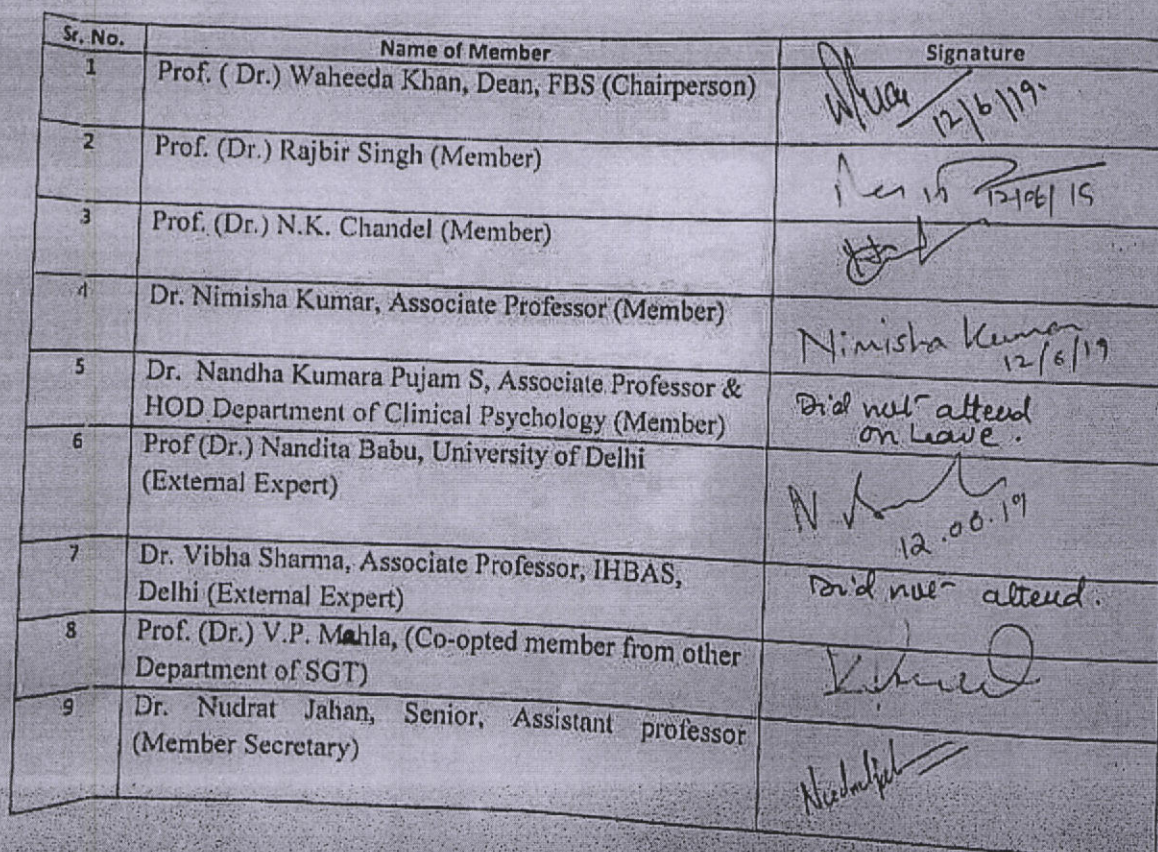 Sr. No. Name of Member Signature
1 Prof. ( Dr.) Waheeda Khan, Dean, FBS (Chairperson)
12/6/19.
2 Prof. (Dr.) Rajbir Singh (Member)
12/06/19
3 Prof. (Dr.) N.K. Chandel (Member)
4 Dr. Nimisha Kumar, Associate Professor (Member)
Nimisha Kumar
12/6/19
5 Dr. Nandha Kumara Pujam S, Associate Professor &
HOD Department of Clinical Psychology (Member)
Did not attend
on Leave.
6 Prof (Dr.) Nandita Babu, University of Delhi
(External Expert)
12.06.19
7 Dr. Vibha Sharma, Associate Professor, IHBAS,
Delhi (External Expert)
Did not attend.
8 Prof. (Dr.) V.P. Mahla, (Co-opted member from other
Department of SGT)
9 Dr. Nudrat Jahan, Senior, Assistant professor
(Member Secretary)